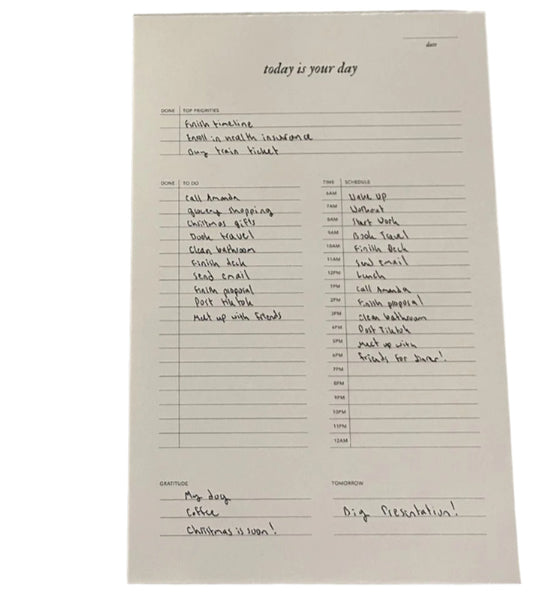 date
today is your day
DONE TOP PRIORITIES
Finish timeline
Enroll in health insurance
Buy train ticket
DONE TO DO
Call Amanda
grocery shopping
Christmas gifts
Book travel
Clean bathroom
Finish deck
Send email
Finish proposal
Post tiktok
Meet up with friends
TIME SCHEDULE
6AM Wake up
7AM Workout
8AM Start work
9AM Book travel
10AM Finish Deck
11AM Send email
12PM Lunch
1PM Call Amanda
2PM Finish proposal
3PM Clean bathroom
4PM Post Tiktok
5PM Meet up with
6PM friends for dinner!
7PM
8PM
9PM
10PM
11PM
12AM
GRATITUDE
My dog
Coffee
Christmas is soon!
TOMORROW
Big Presentation!